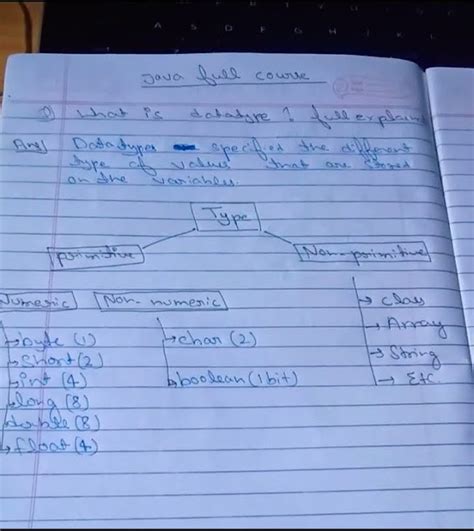 Java full course
Q What is datatype ? full explained
Ans) Datatypes specified the different
type of values that are stored
on the variables.
Type
primitive
Non-primitive
Numeric
Non-numeric
→ byte (1)
→ short (2)
→ int (4)
→ long (8)
double (8)
→ float (4)
→ char (2)
→ boolean (1 bit)
→ class
→ Array
→ String
→ Etc.